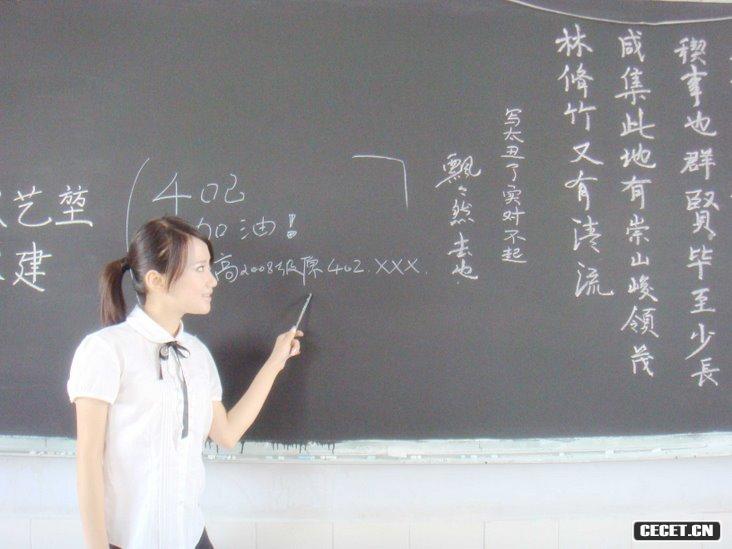 稧事也群賢畢至少長
咸集此地有崇山峻領茂
林脩竹又有清流
写太丑了实对不起
飄々然去也
艺堃
建
加油!
高2008级原402.XXX.
CECET.CN